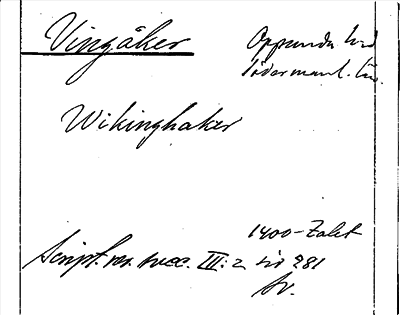 Vingåker
Oppunda hd
Södermanl. län.
Wikinghaker
1400-talet
Script. rer. svec. III: 2 sid 281
Sv.